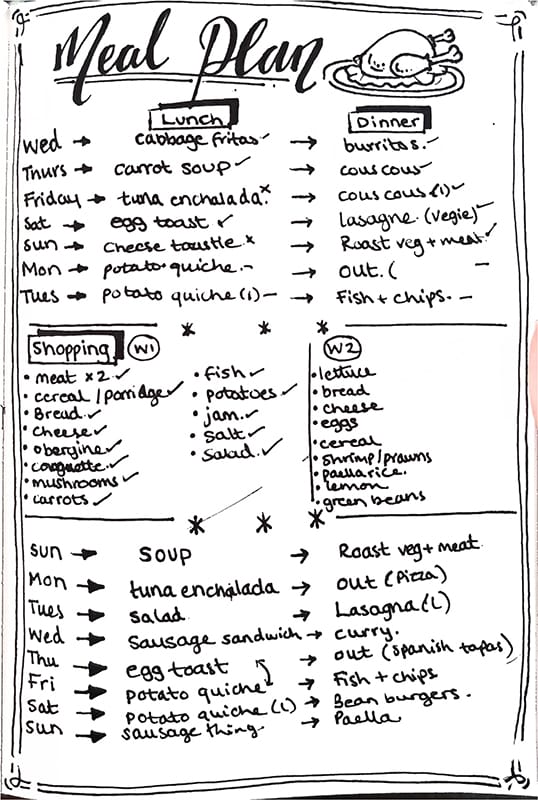 Meal Plan
Lunch Dinner
Wed → cabbage fritas ✓ → burritos. ✓
Thurs → carrot soup ✓ → couscous ✓
Friday → tuna enchalada. x → couscous (1) ✓
Sat → egg toast ✓ → lasagne. (vegie) ✓
Sun → cheese toastle x → Roast veg + meat. ✓
Mon → potato quiche. - → out. ( -
Tues → potato quiche (1) - → Fish + chips. -
Shopping W1 W2
• meat x2 ✓ • fish ✓ • lettuce
• cereal / porridge ✓ • potatoes ✓ • bread
• Bread ✓ • jam ✓ • cheese
• cheese ✓ • salt ✓ • eggs
• obergine ✓ • salad ✓ • cereal
• courguette ✓ • shrimp/prawns
• mushrooms ✓ • paella rice.
• carrots ✓ • lemon
• green beans
Sun → soup → Roast veg + meat.
Mon → tuna enchalada → out (Pizza)
Tues → salad → Lasagna (L)
Wed → sausage sandwich → curry.
Thu → egg toast → out (Spanish tapas)
Fri → potato quiche → Fish + chips
Sat → potato quiche (L) → Bean burgers.
Sun → sausage thing. → Paella